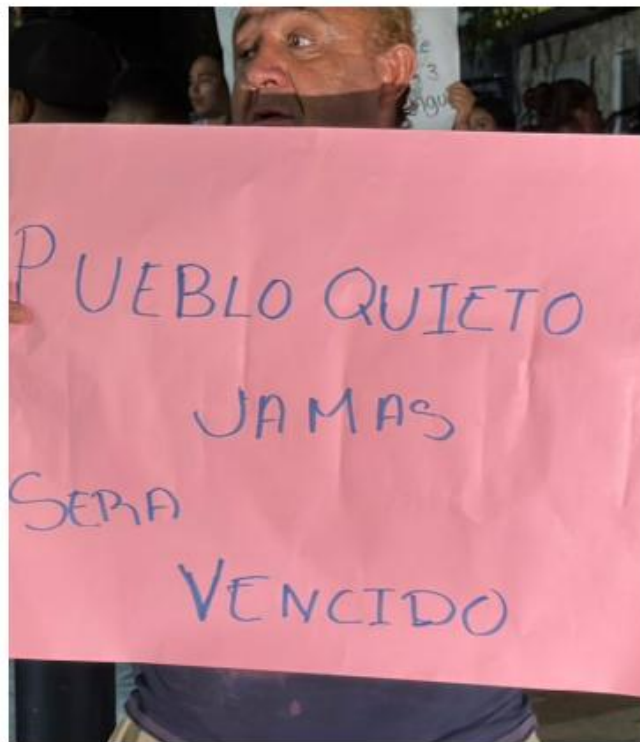 e
3
PUEBLO QUIETO
JAMAS
SERA
VENCIDO